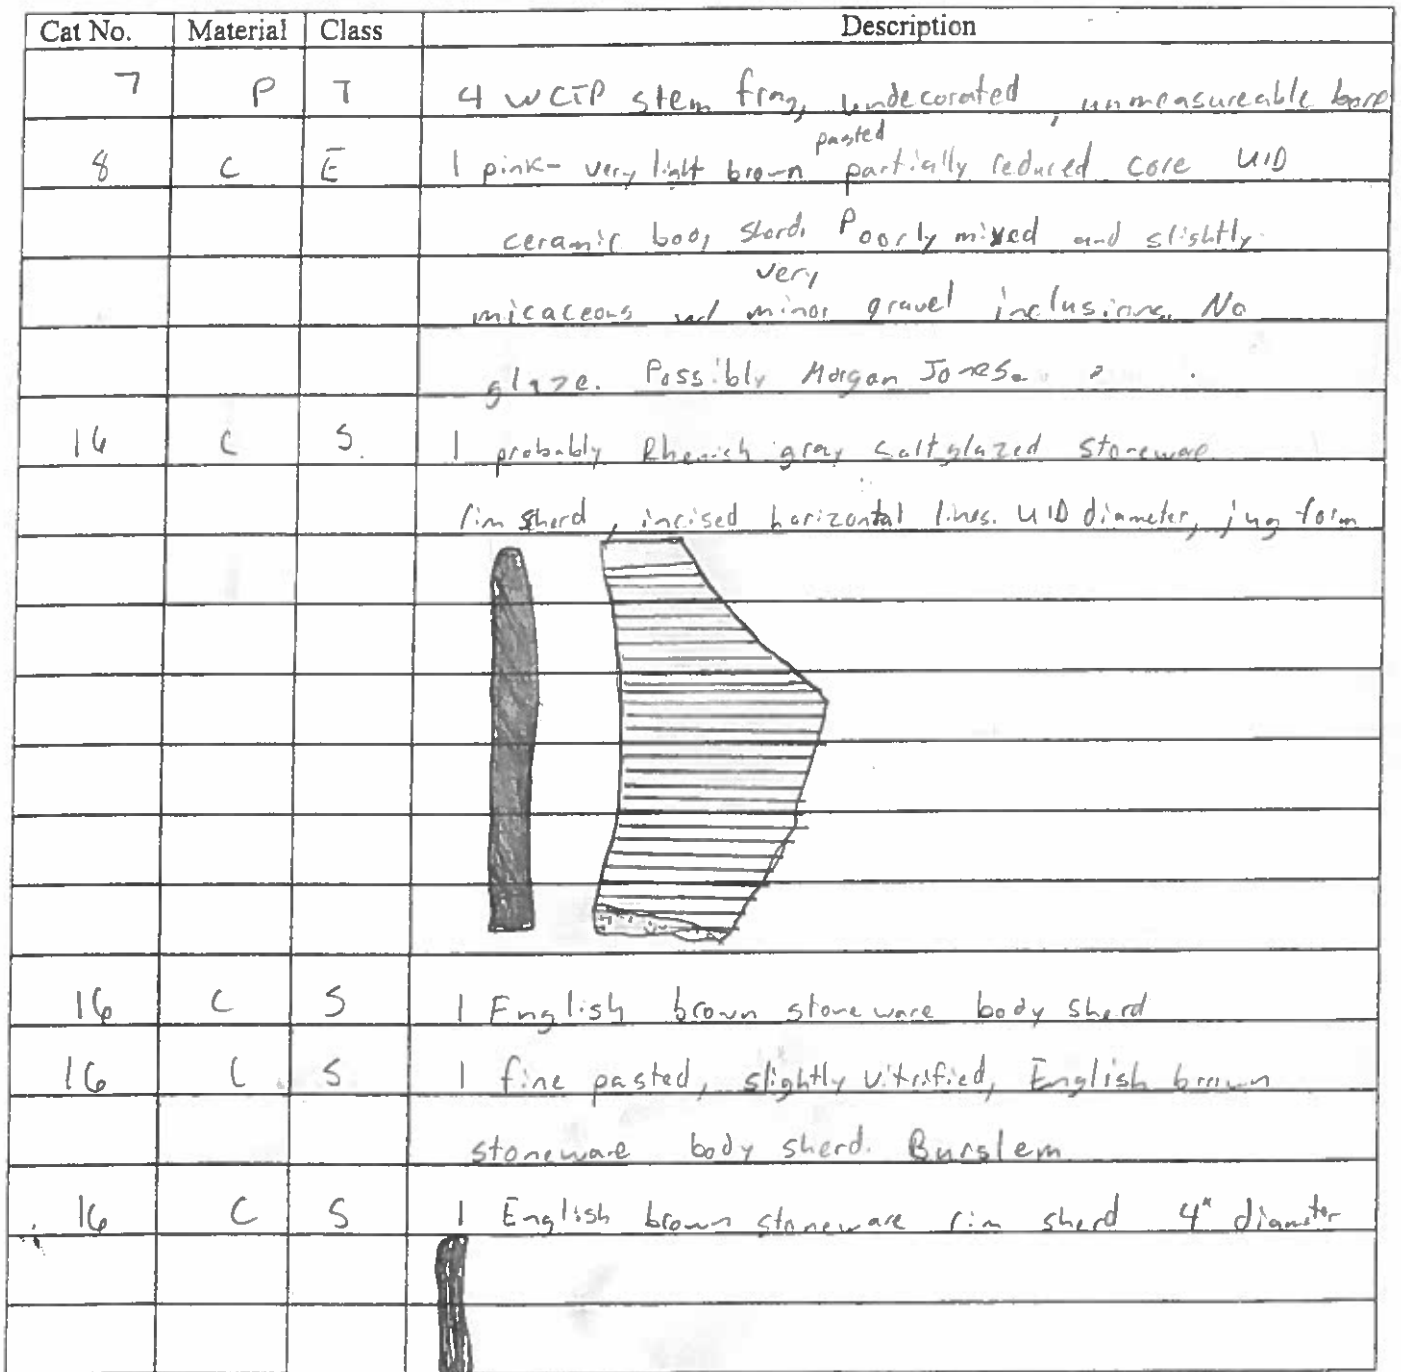 Cat No. Material Class Description
7 P T 4 WCTP stem frag, undecorated, unmeasureable bore
pasted
8 C E 1 pink- very light brown partially reduced core UID
ceramic body sherd. Poorly mixed and slightly
very
micaceous w/ minor gravel inclusions. No
glaze. Possibly Morgan Jones.
16 C S 1 probably Rhenish gray saltglazed stoneware
rim sherd, incised horizontal lines. UID diameter, jug form
16 C S 1 English brown stoneware body sherd
16 C S 1 fine pasted, slightly vitrified, English brown
stoneware body sherd. Burslem
16 C S 1 English brown stoneware rim sherd 4" diameter